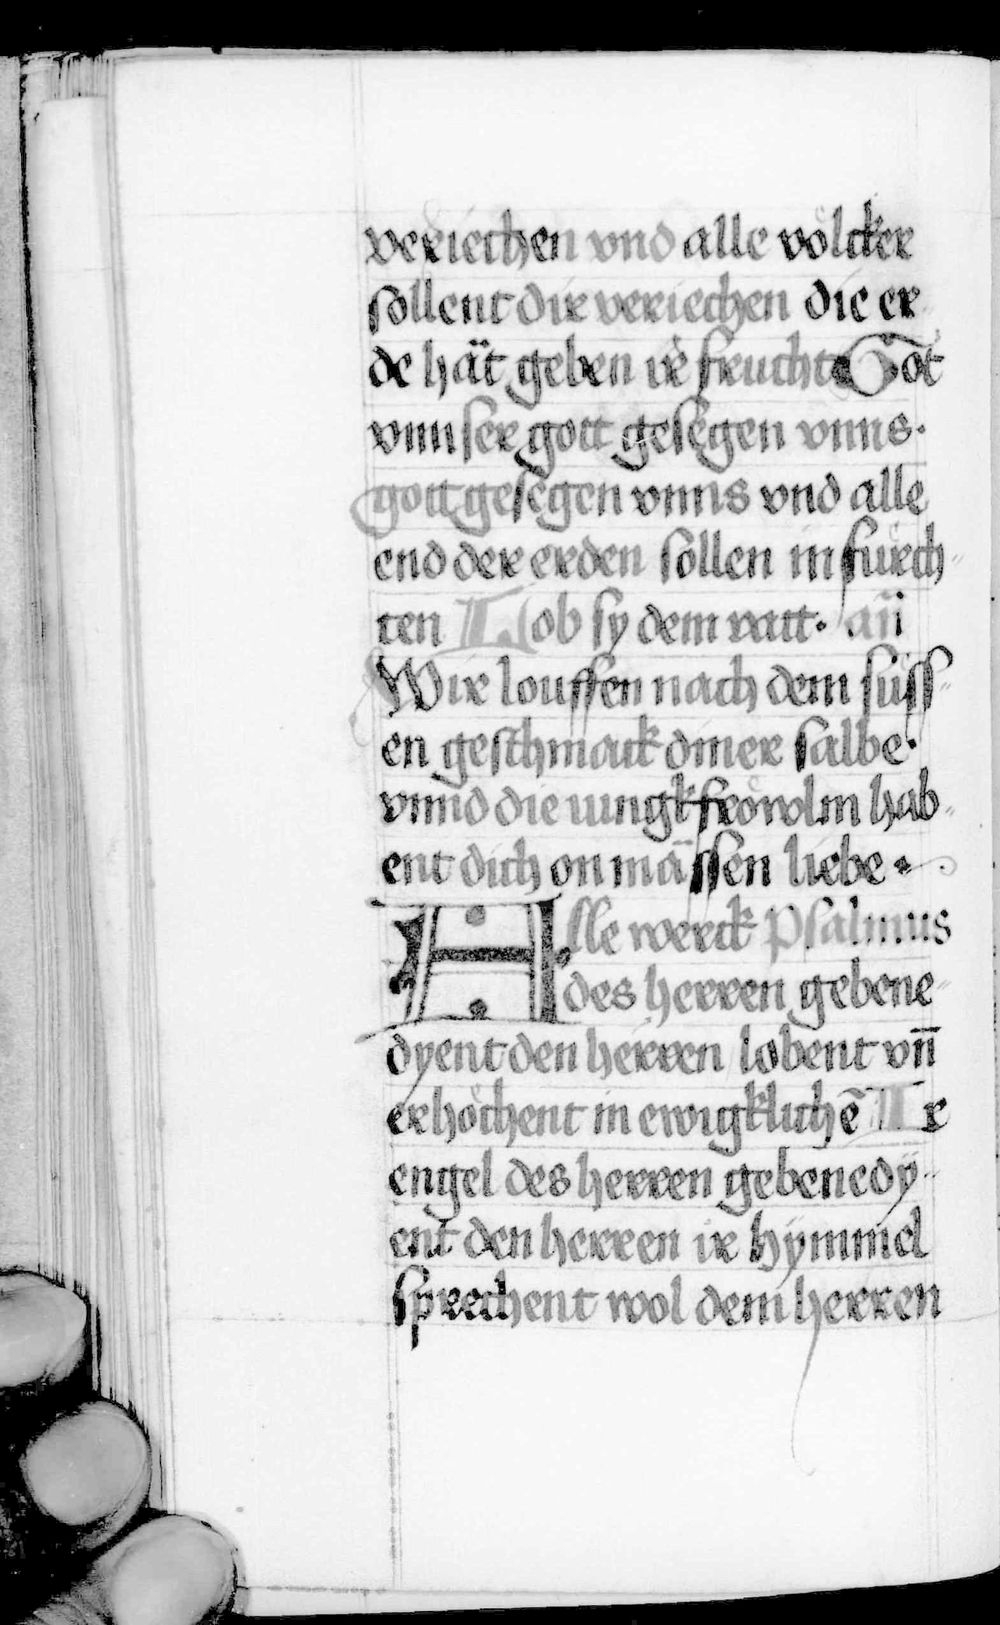 veriechen vnd alle völcker
söllent dir veriechen die er
de hät geben ir frucht Got
vnnser gott gesegen vnns.
gott gesegen vnns vnd alle
end der erden söllen in fürch„
ten Lob sy dem vatt. añ
Wir louffen nach dem süss„
en geschmack diner salbe.
vnnd die iungkfröwlin hab„
ent dich on mässen liebe.
Alle werck Psalmus
des herren gebene„
dyent den herren lobent vñ
erhöchent in ewigklichē Ir
engel des herren gebenedy„
ent den herren ir hymmel
sprechent wol dem herren